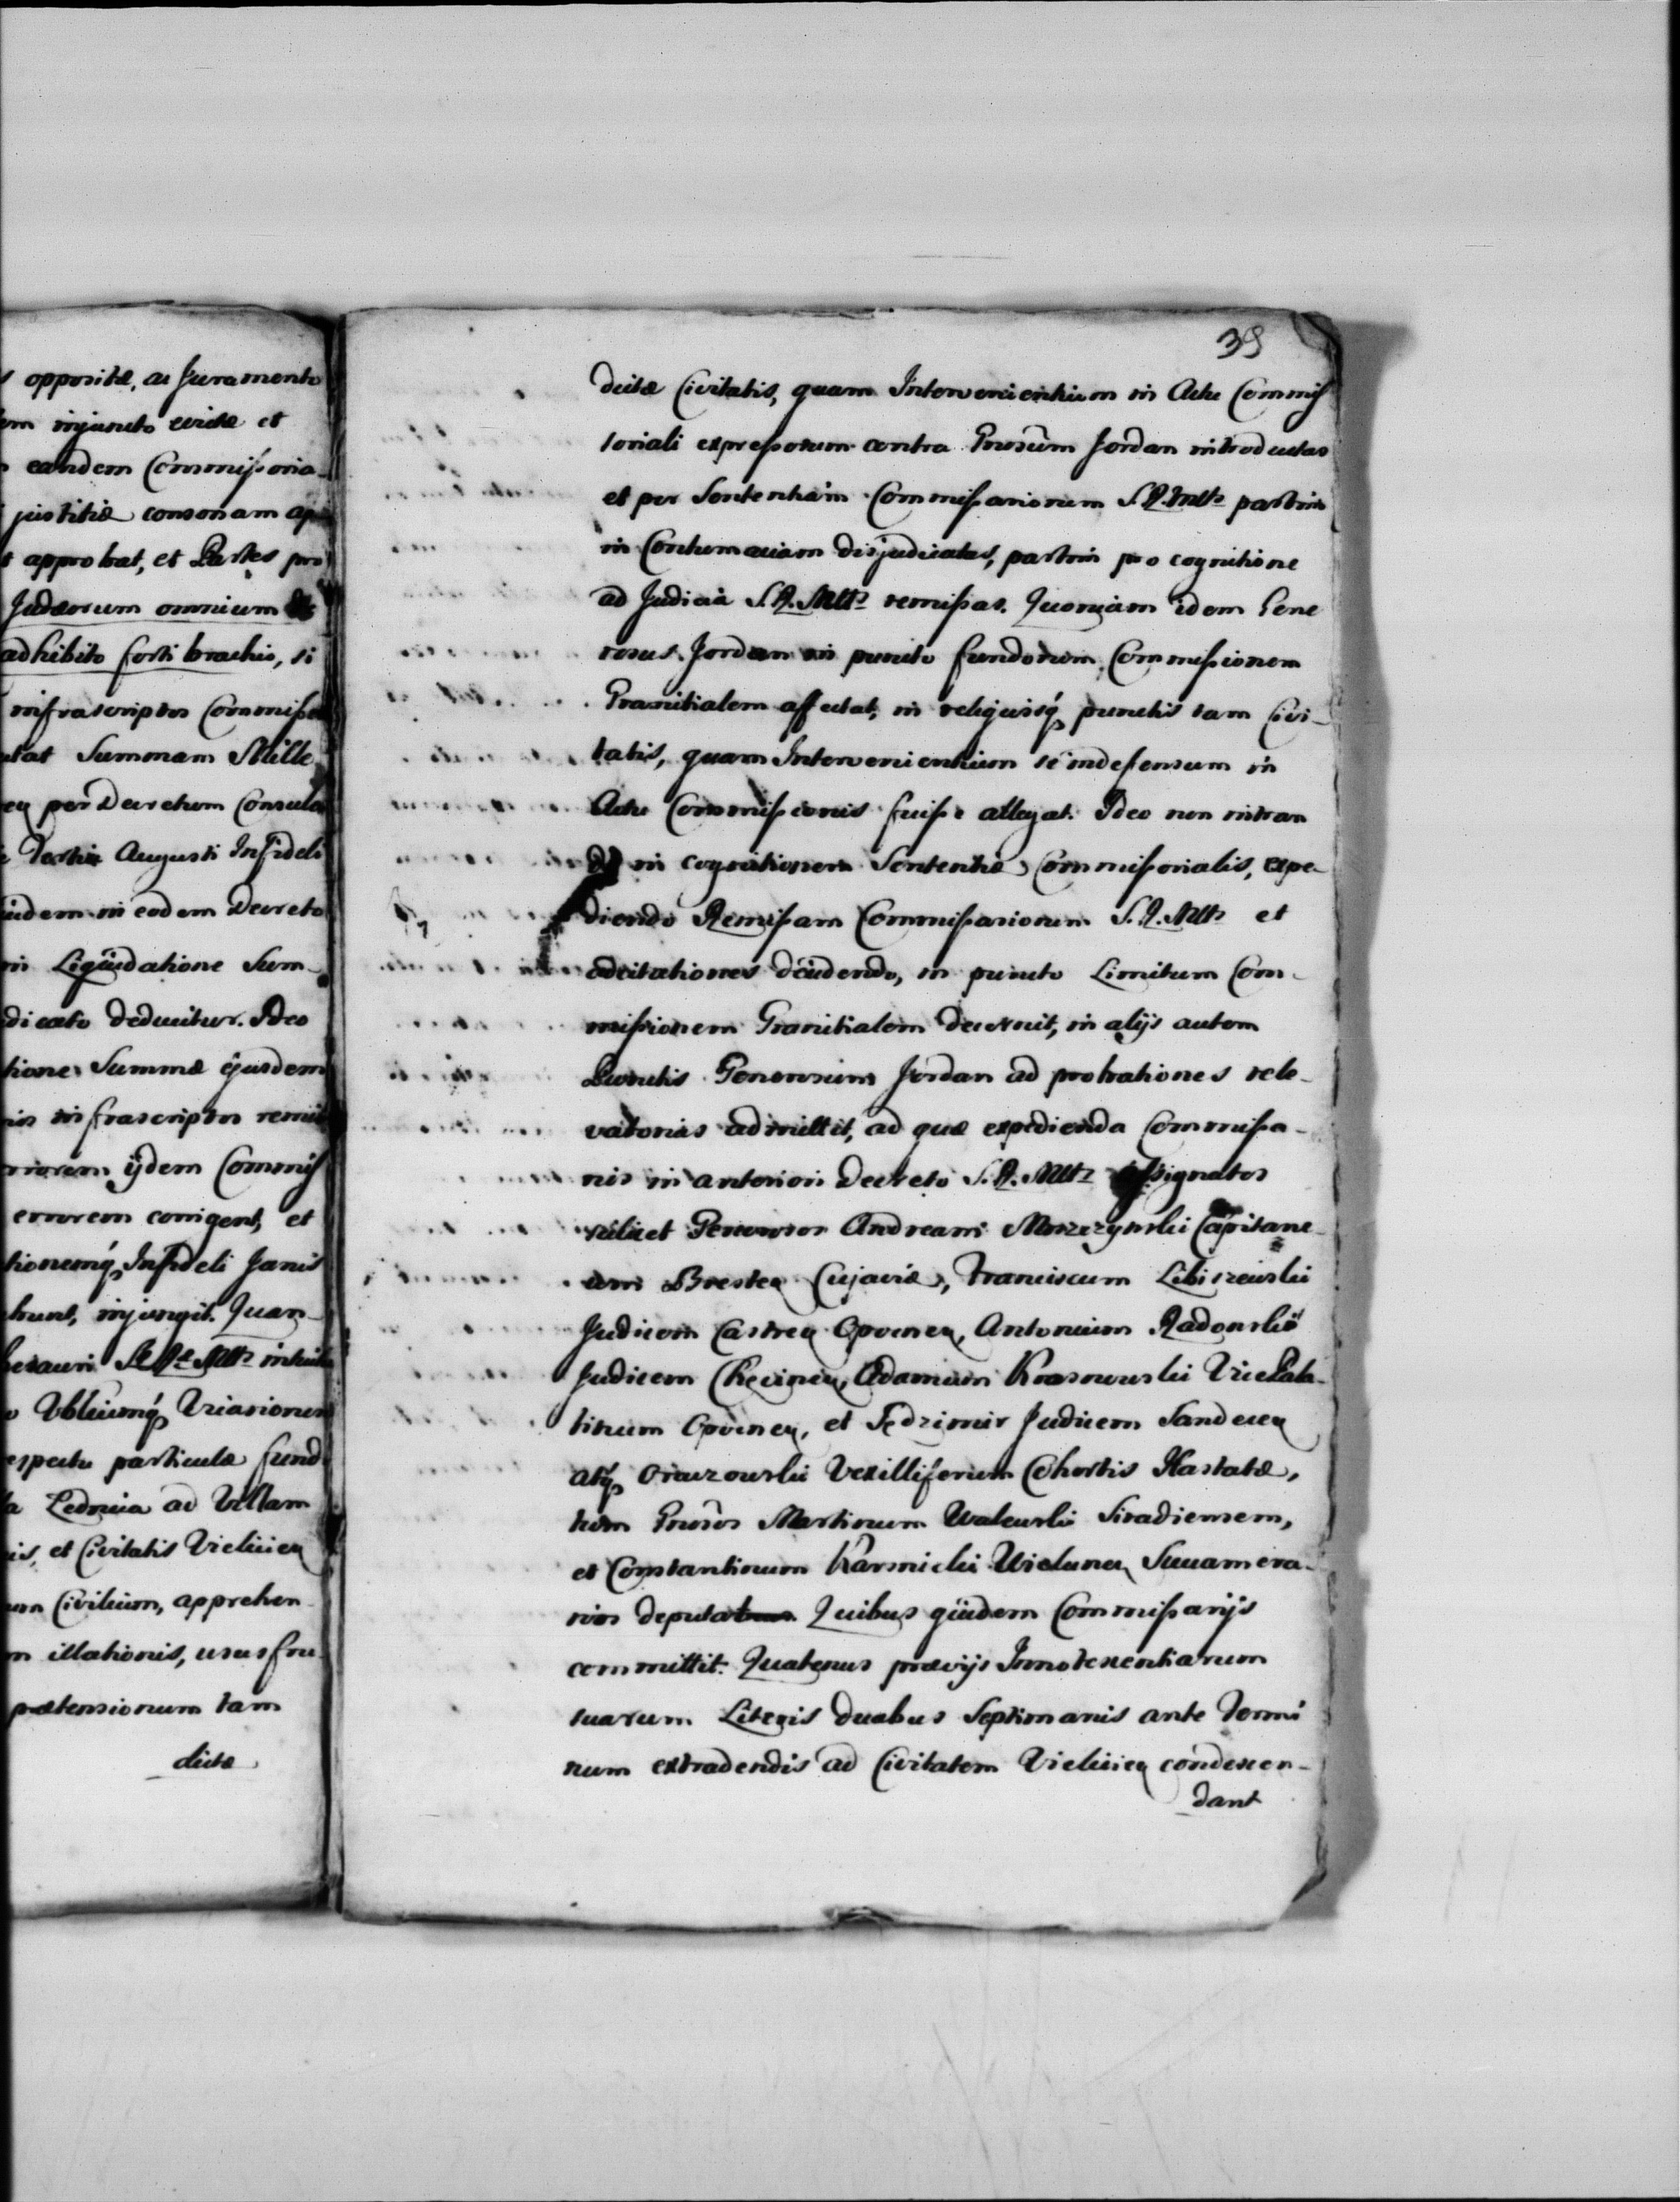 s oppositæ, ac Juramento
em injuncto evictæ et
eandem Commissoria-
justitiæ consonam
approbat, et Partes pro
Judæorum omnium
adhibito forti brachio, si
infrascriptos Commiss
Summam Mille
per Decretum Consula
Augusti Infideli
eidem in eodem Decreto
in Liquidatione Sum-
dicato deducitur. Ideo
tione Summæ ejusdem
infrascriptos
ijdem Commis
errorem corrigent, et
tionemq, Infideli Janis
bunt, injungit. Quan-
particulæ fund
Lednica ad Villam
is, et Civitatis Vielicien
Civilium, apprehen-
m illationis, ususfru-
prætensionum tam
dictæ
39
dictæ Civitatis, quam Intervenientium in Actu Commis
soriali expressorum contra Gnosum Jordan introductas
et per Sententiam Commissariorum S. R. Mttis partim
in Contumaciam disjudicatas, partim pro cognitione
ad Judicia S. R. Mttis remissas. Quoniam idem Gene
rosus Jordan in puncto fundorum Commissionem
Granitialem affectat, in reliquisq, punctis tam Civi-
tatis, quam Intervenientium se indefensum in
Actu Commissionis fuisse allegat. Ideo non intran
do in cognitionem Sententiæ Commissorialis, expe-
diendo Remissam Commissariorum S. R. Mttis et
adcitationes decidendo, in puncto Limitum Com-
missionem Granitialem decernit, in alijs autem
Punctis Generosum Jordan ad probationes rele-
vatorias admittit, ad quæ expedienda Commissa-
rios in anteriori Decreto S. R. Mttis assignatos
scilicet Generosos Andream Moszczynski Capitane-
um Bresten Cujaviæ, Franciscum Libiszewski
Judicem Castren Opocnen, Antonium Radonski
Judicem Checinen, Adamum Krasnowski Vice Pala-
tinum Opocnen, et Jędrimir Judicem Sandecen
atq, Oraczowski Vexilliferum Cohortis Hastatæ,
tum Gnosos Martinum Walewski Siradiensem,
et Constantinum Karsnicki Wielunen Succamera-
rios deputat Quibus quidem Commissarijs
committit. Quatenus prævijs Innotescentiarum
suarum Literis duabus Septimanis ante Termi
num extradendis ad Civitatem Vielicien condescen-
dant